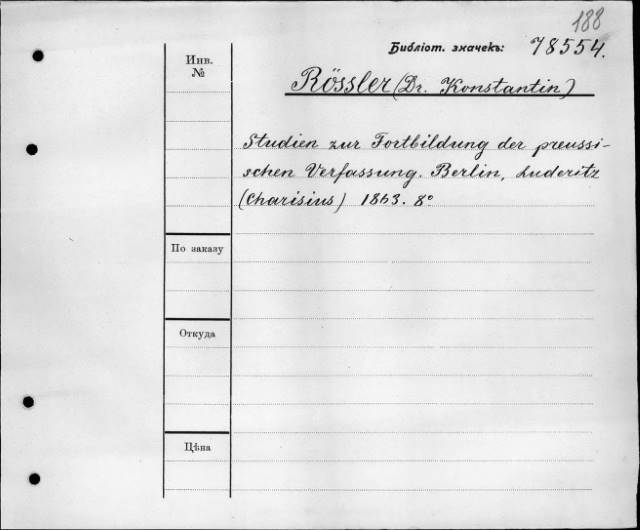 188
Библіот. значекъ: 78554.
Инв.
№
Rössler (Dr. Konstantin)
Studien zur Fortbildung der preussi-
schen Verfassung. Berlin, Luderitz
(Charisius) 1863. 8°
По заказу
Откуда
Цѣна